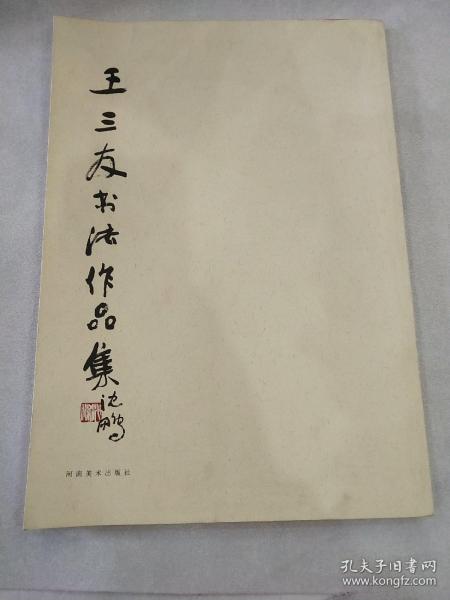 王三友书法作品集
沈鹏
河南美术出版社
孔夫子旧书网
www.kongfz.com